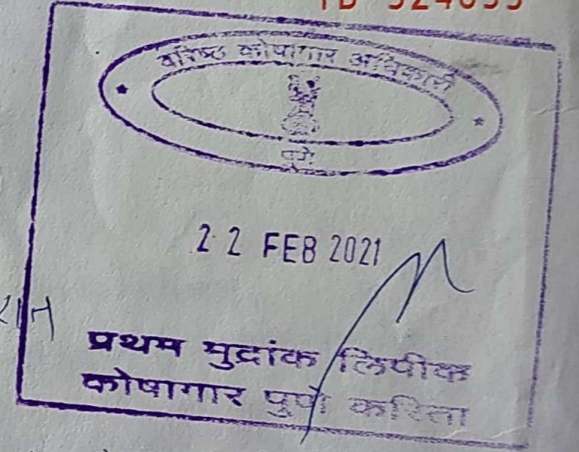 वरिष्ठ कोषागार अधिकारी
पुणे
22 FEB 2021
प्रथम मुद्रांक लिपीक
कोषागार पुणे करिता